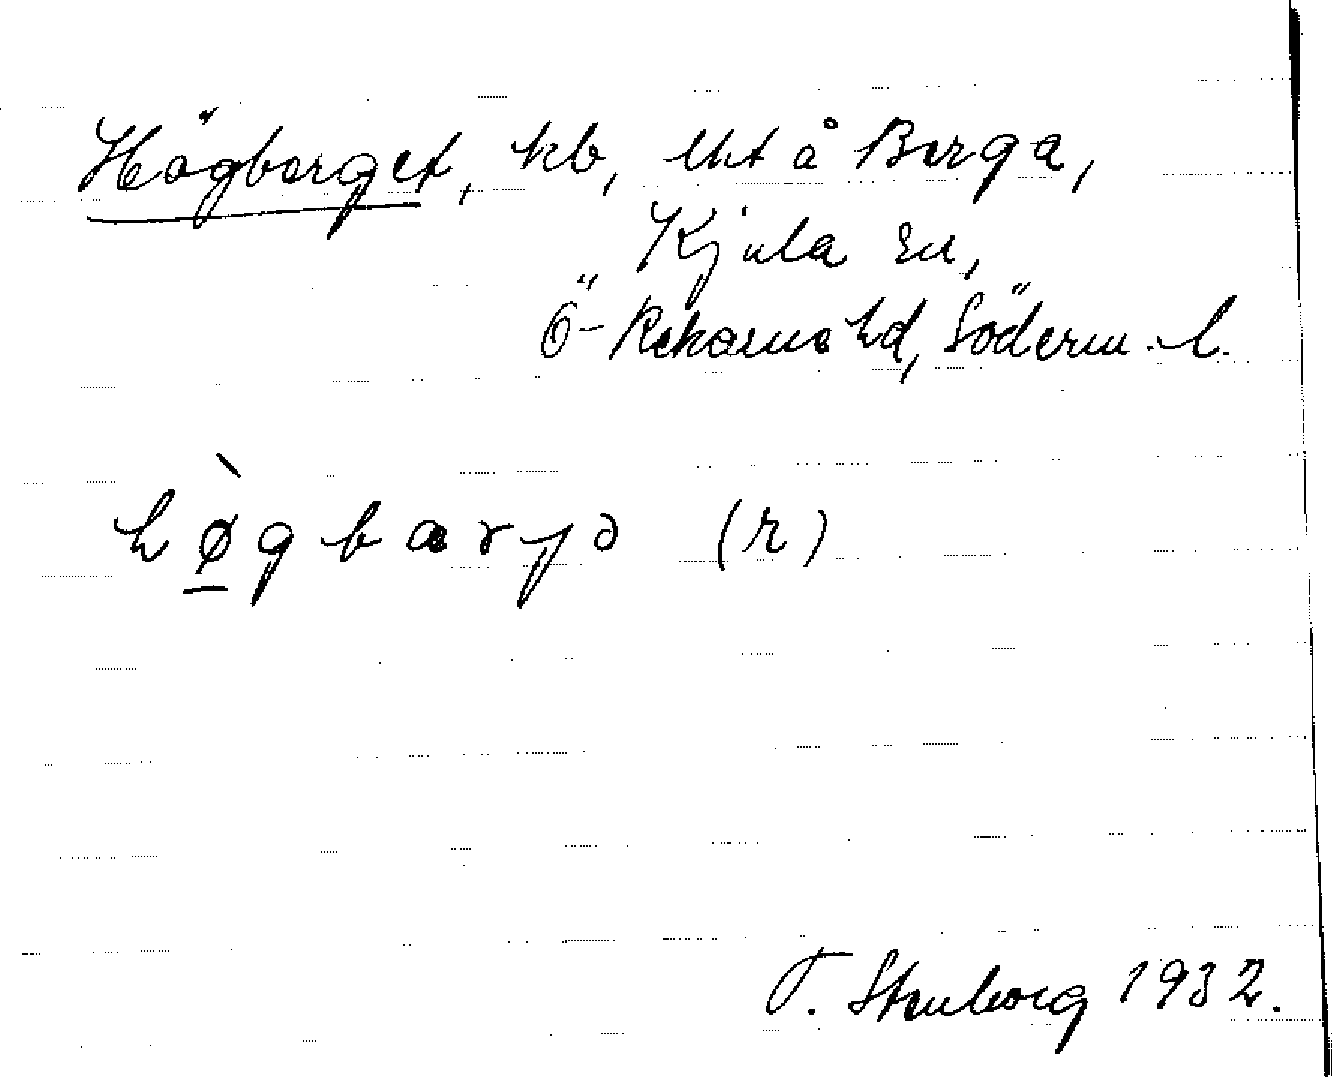 Högberget, kb, lht å Berga,
Kjula sn,
Ö-Rekarne hd, Söderm. l.
hø̀gbarjə (r)
T. Stenborg 1932.